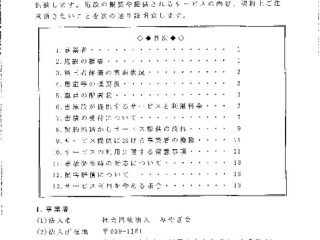 依頼します。施設の概要や提供されるサービスの内容、契約上ご注
意頂きたいことを次の通り説明致します。
◇◆目次◆◇
1.事業者・・・ 1
2.施設の概要・・・ 1
3.第三者評価の実施状況・・・ 1
4.居室等の概要・・・ 2
5.職員の配置状況・・・ 3
6.当施設が提供するサービスと利用料金・・・ 3
7.苦情の受付について・・・ 7
8.契約締結からサービス提供の流れ・・・ 9
9.サービス提供における事業者の義務・・・ 11
10.サービスの利用に関する留意事項・・・ 11
11.事故発生時の対応について・・・ 13
12.損害賠償について・・・ 13
13.サービス利用をやめる場合・・・ 13
1.事業者
(1)法人名 社会福祉法人 みやぎ会
(2)法人所在地 〒059-1161